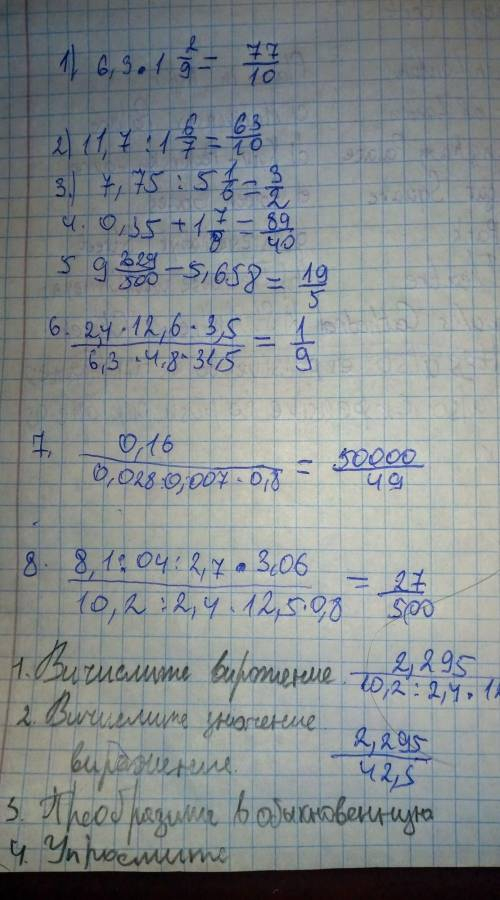 1) 6,3 • 1 2/9 = 77/10
2) 11,7 : 1 6/7 = 63/10
3.) 7,75 : 5 1/6 = 3/2
4. 0,35 + 1 7/8 = 89/40
5 9 229/500 - 5,658 = 19/5
6. 2,4 · 12,6 · 3,5 / 6,3 · 4,8 · 31,5 = 1/9
7, 0,16 / 0,028 · 0,007 · 0,8 = 50000/49
8. 8,1 : 04 : 2,7 • 3,06 / 10,2 : 2,4 · 12,5 · 0,8 = 27/500
1. Вичислите виржение. 2,295 / 10,2 : 2,4 · 12
2. Вичислите значение
виражение. 2,295 / 42,5
3. Преобразите в обыкновенную
4. Упростите